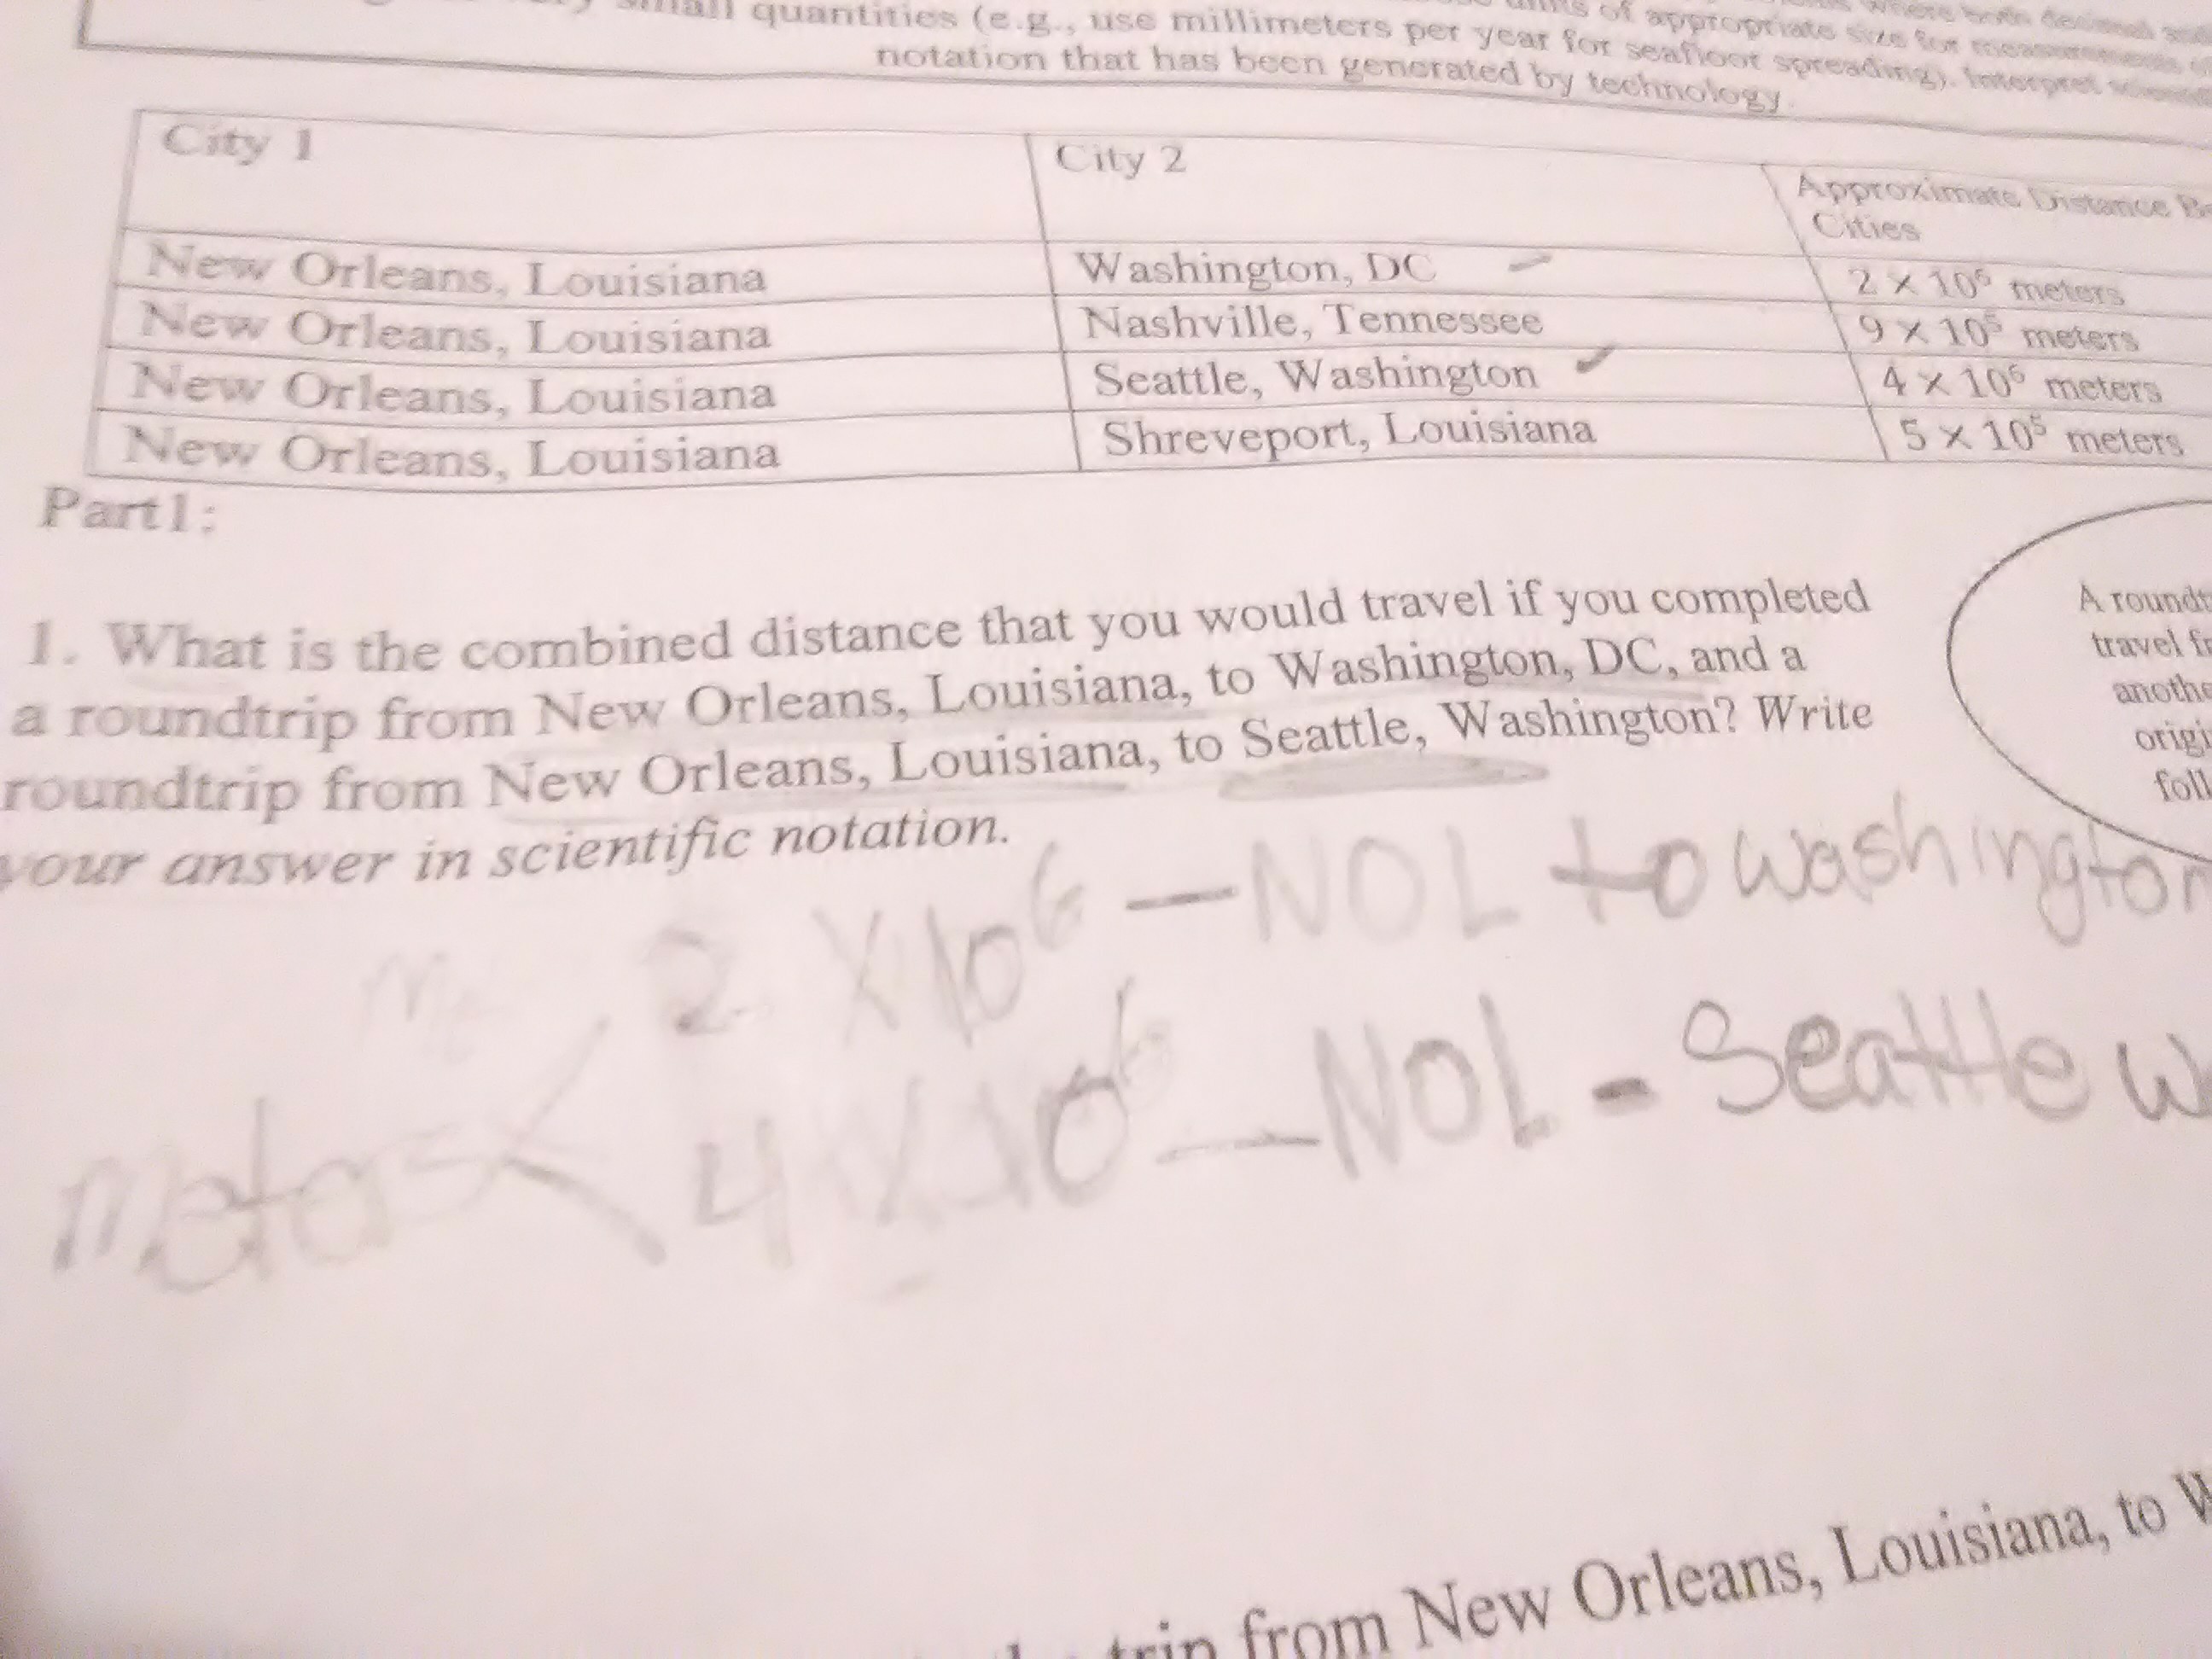 small quantities (e.g., use millimeters per year for seafloor spreading). Interpret
of appropriate size for measurements
notation that has been generated by technology.
City 1 City 2 Approximate Distance
Cities
New Orleans, Louisiana Washington, DC 2 × 10⁶ meters
New Orleans, Louisiana Nashville, Tennessee 9 × 10⁵ meters
New Orleans, Louisiana Seattle, Washington 4 × 10⁶ meters
New Orleans, Louisiana Shreveport, Louisiana 5 × 10⁵ meters
Part1:
1. What is the combined distance that you would travel if you completed
a roundtrip from New Orleans, Louisiana, to Washington, DC, and a
roundtrip from New Orleans, Louisiana, to Seattle, Washington? Write
your answer in scientific notation.
A
travel
2 X 10⁶ — NOL to Washington
meters < 4 X 10⁶ — NOL - Seattle W
trip from New Orleans, Louisiana, to W